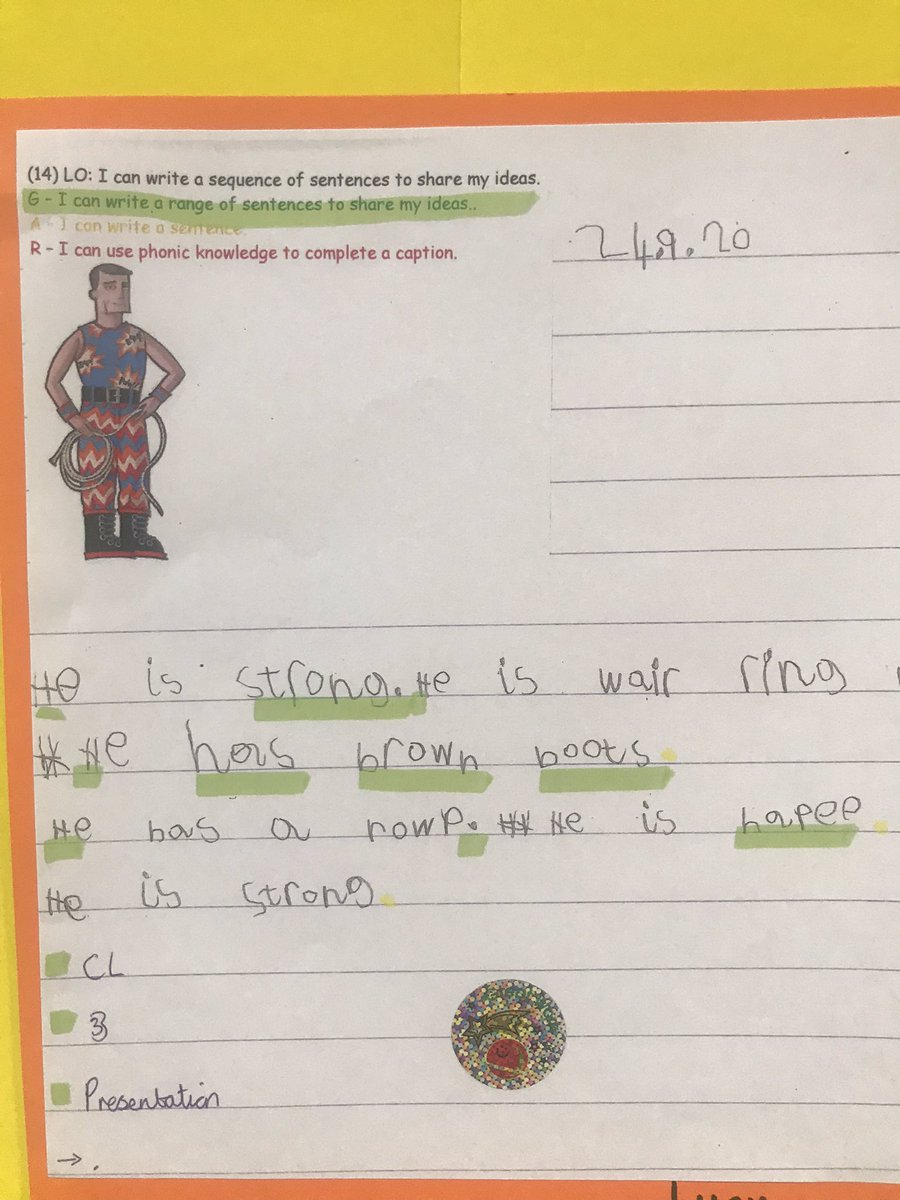 (14) LO: I can write a sequence of sentences to share my ideas.
G - I can write a range of sentences to share my ideas..
A - I can write a sentence.
R - I can use phonic knowledge to complete a caption.
24.9.20
He is strong. He is wair ring
He has brown boots.
He has a rowp. He is hapee.
He is strong.
CL
3
Presentation
→ .